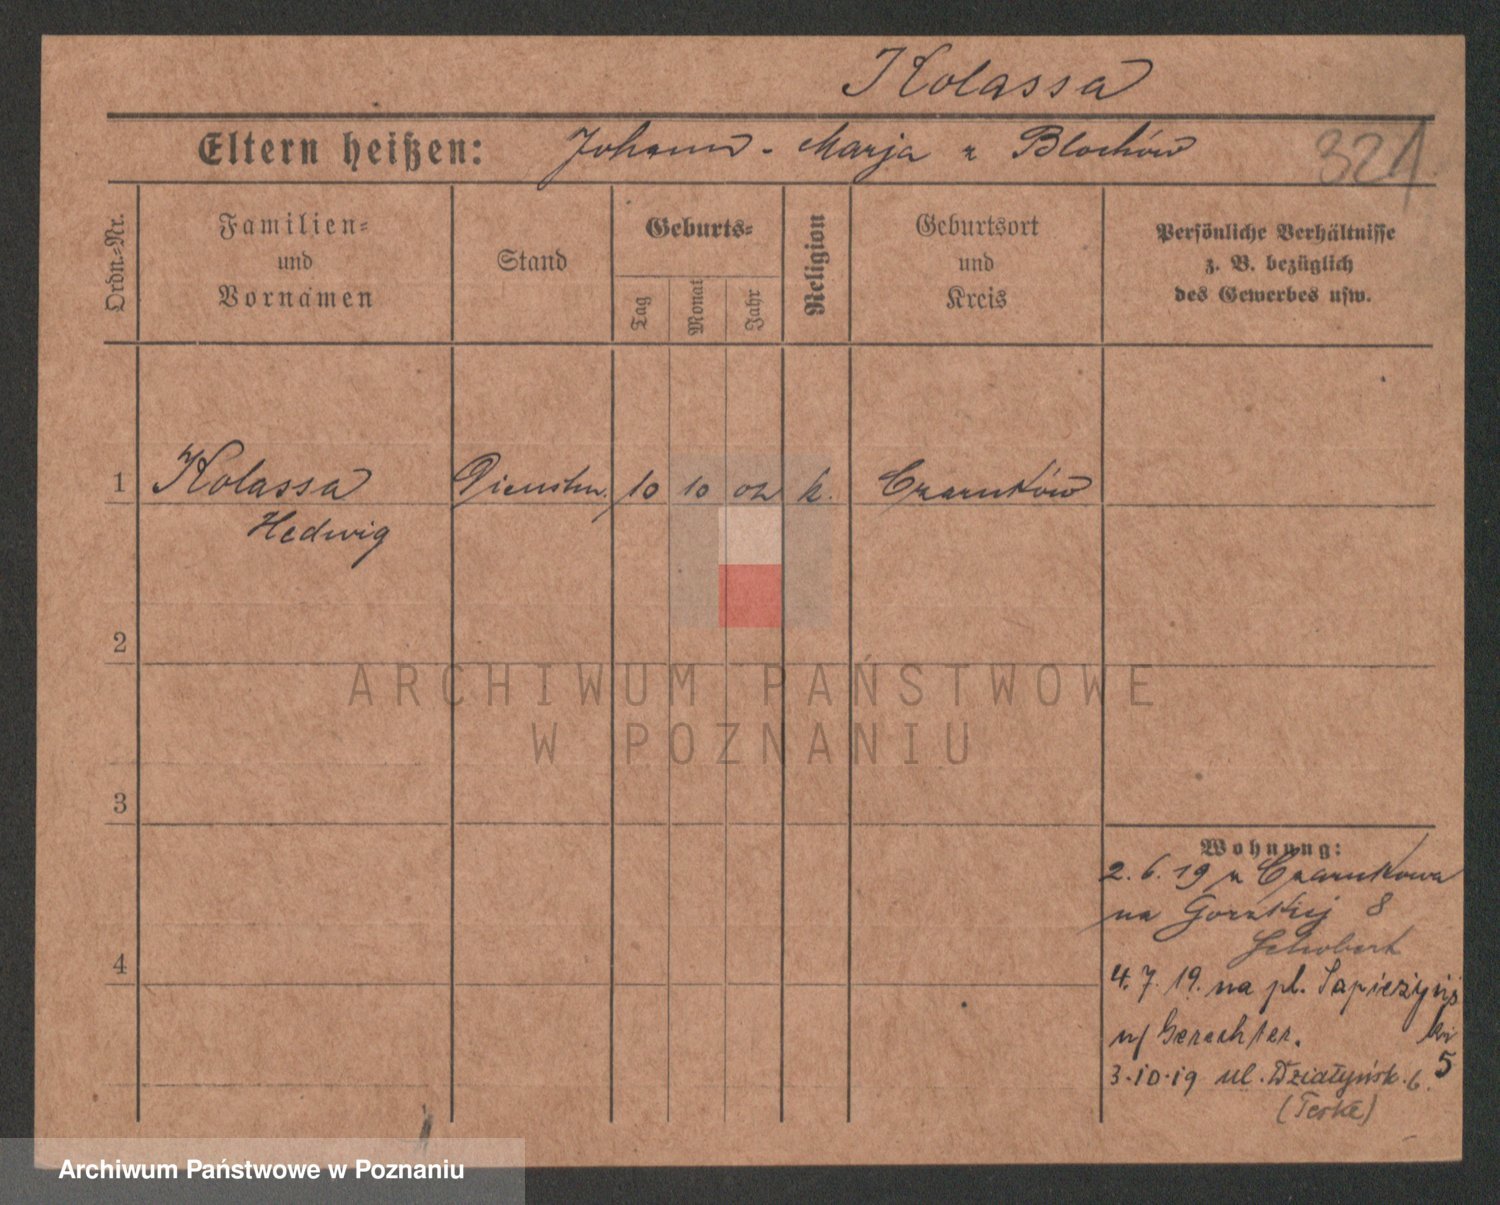 Kolassa
Eltern heißen: Johann - Marja z Blochów
321
Ordn.=Nr.
Familien=
und
Vornamen
Stand
Geburts=
Tag
Monat
Jahr
Religion
Geburtsort
und
Kreis
Persönliche Verhältnisse
z. B. bezüglich
des Gewerbes usw.
1 Kolassa Dienstm. 10 10 02 k. Czarnków
Hedwig
2
ARCHIWUM PAŃSTWOWE
W POZNANIU
3
Wohnung:
2.6.19 z Czarnkowa
na Gorzkiej 8
Schobert
4
4.7.19. na pl. Sapieżyńs
ki
n/ Gerechter. 5
3.10.19 ul. Działyńsk. 6.
(Teske)
Archiwum Państwowe w Poznaniu